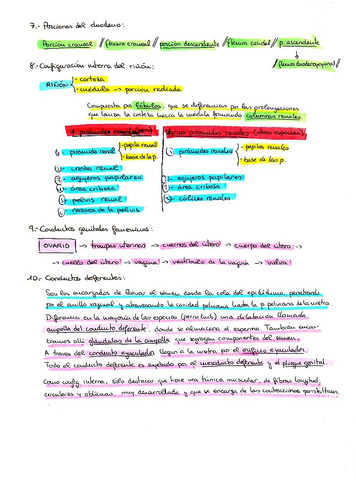 7.- Porciones del duodeno:
Porción craneal // flexura craneal // porción descendente // flexura caudal // p. ascendente
// flexura duodenoyeyunal //
8.- Configuración interna del riñón:
RIÑÓN - corteza
- médula → porción radiada
Compuesta por lóbulos, que se diferencian por las prolongaciones
que lanza la corteza hacia la médula formando columnas renales.
pirámides renales (otras especies)
- pirámide renal - papila renal
- base de la p.
- pirámides renales - papilas renales
- base de las p.
- cresta renal
- agujeros papilares
- área cribosa
- pelvis renal
- recesos de la pelvis
- agujeros papilares
- área cribosa
- cálices renales
9.- Conductos genitales femeninos:
OVARIO → trompas uterinas → cuernos del útero → cuerpo del útero →
→ cuello del útero → vagina → vestíbulo de la vagina → vulva
10.- Conductos deferentes:
Son los encargados de llevar el semen desde la cola del epidídimo, penetrando
por el anillo vaginal y atravesando la cavidad pelviana hasta la p. pelviana de la uretra.
Diferencia en la mayoría de las especies (perro) una dilatación llamada
ampolla del conducto deferente, donde se almacena el esperma. También
allí glándulas de la ampolla que segregan componentes del semen.
A través del conducto eyaculador llegan a la uretra por el orificio eyaculador.
Todo el conducto deferente es sujetado por el mesoducto deferente y el pliegue genital.
Como config. interna, sólo destacar que tiene una túnica muscular, de fibras longitud,
circulares y oblicuas, muy desarrollada y que se encarga de las contracciones peristálticas.